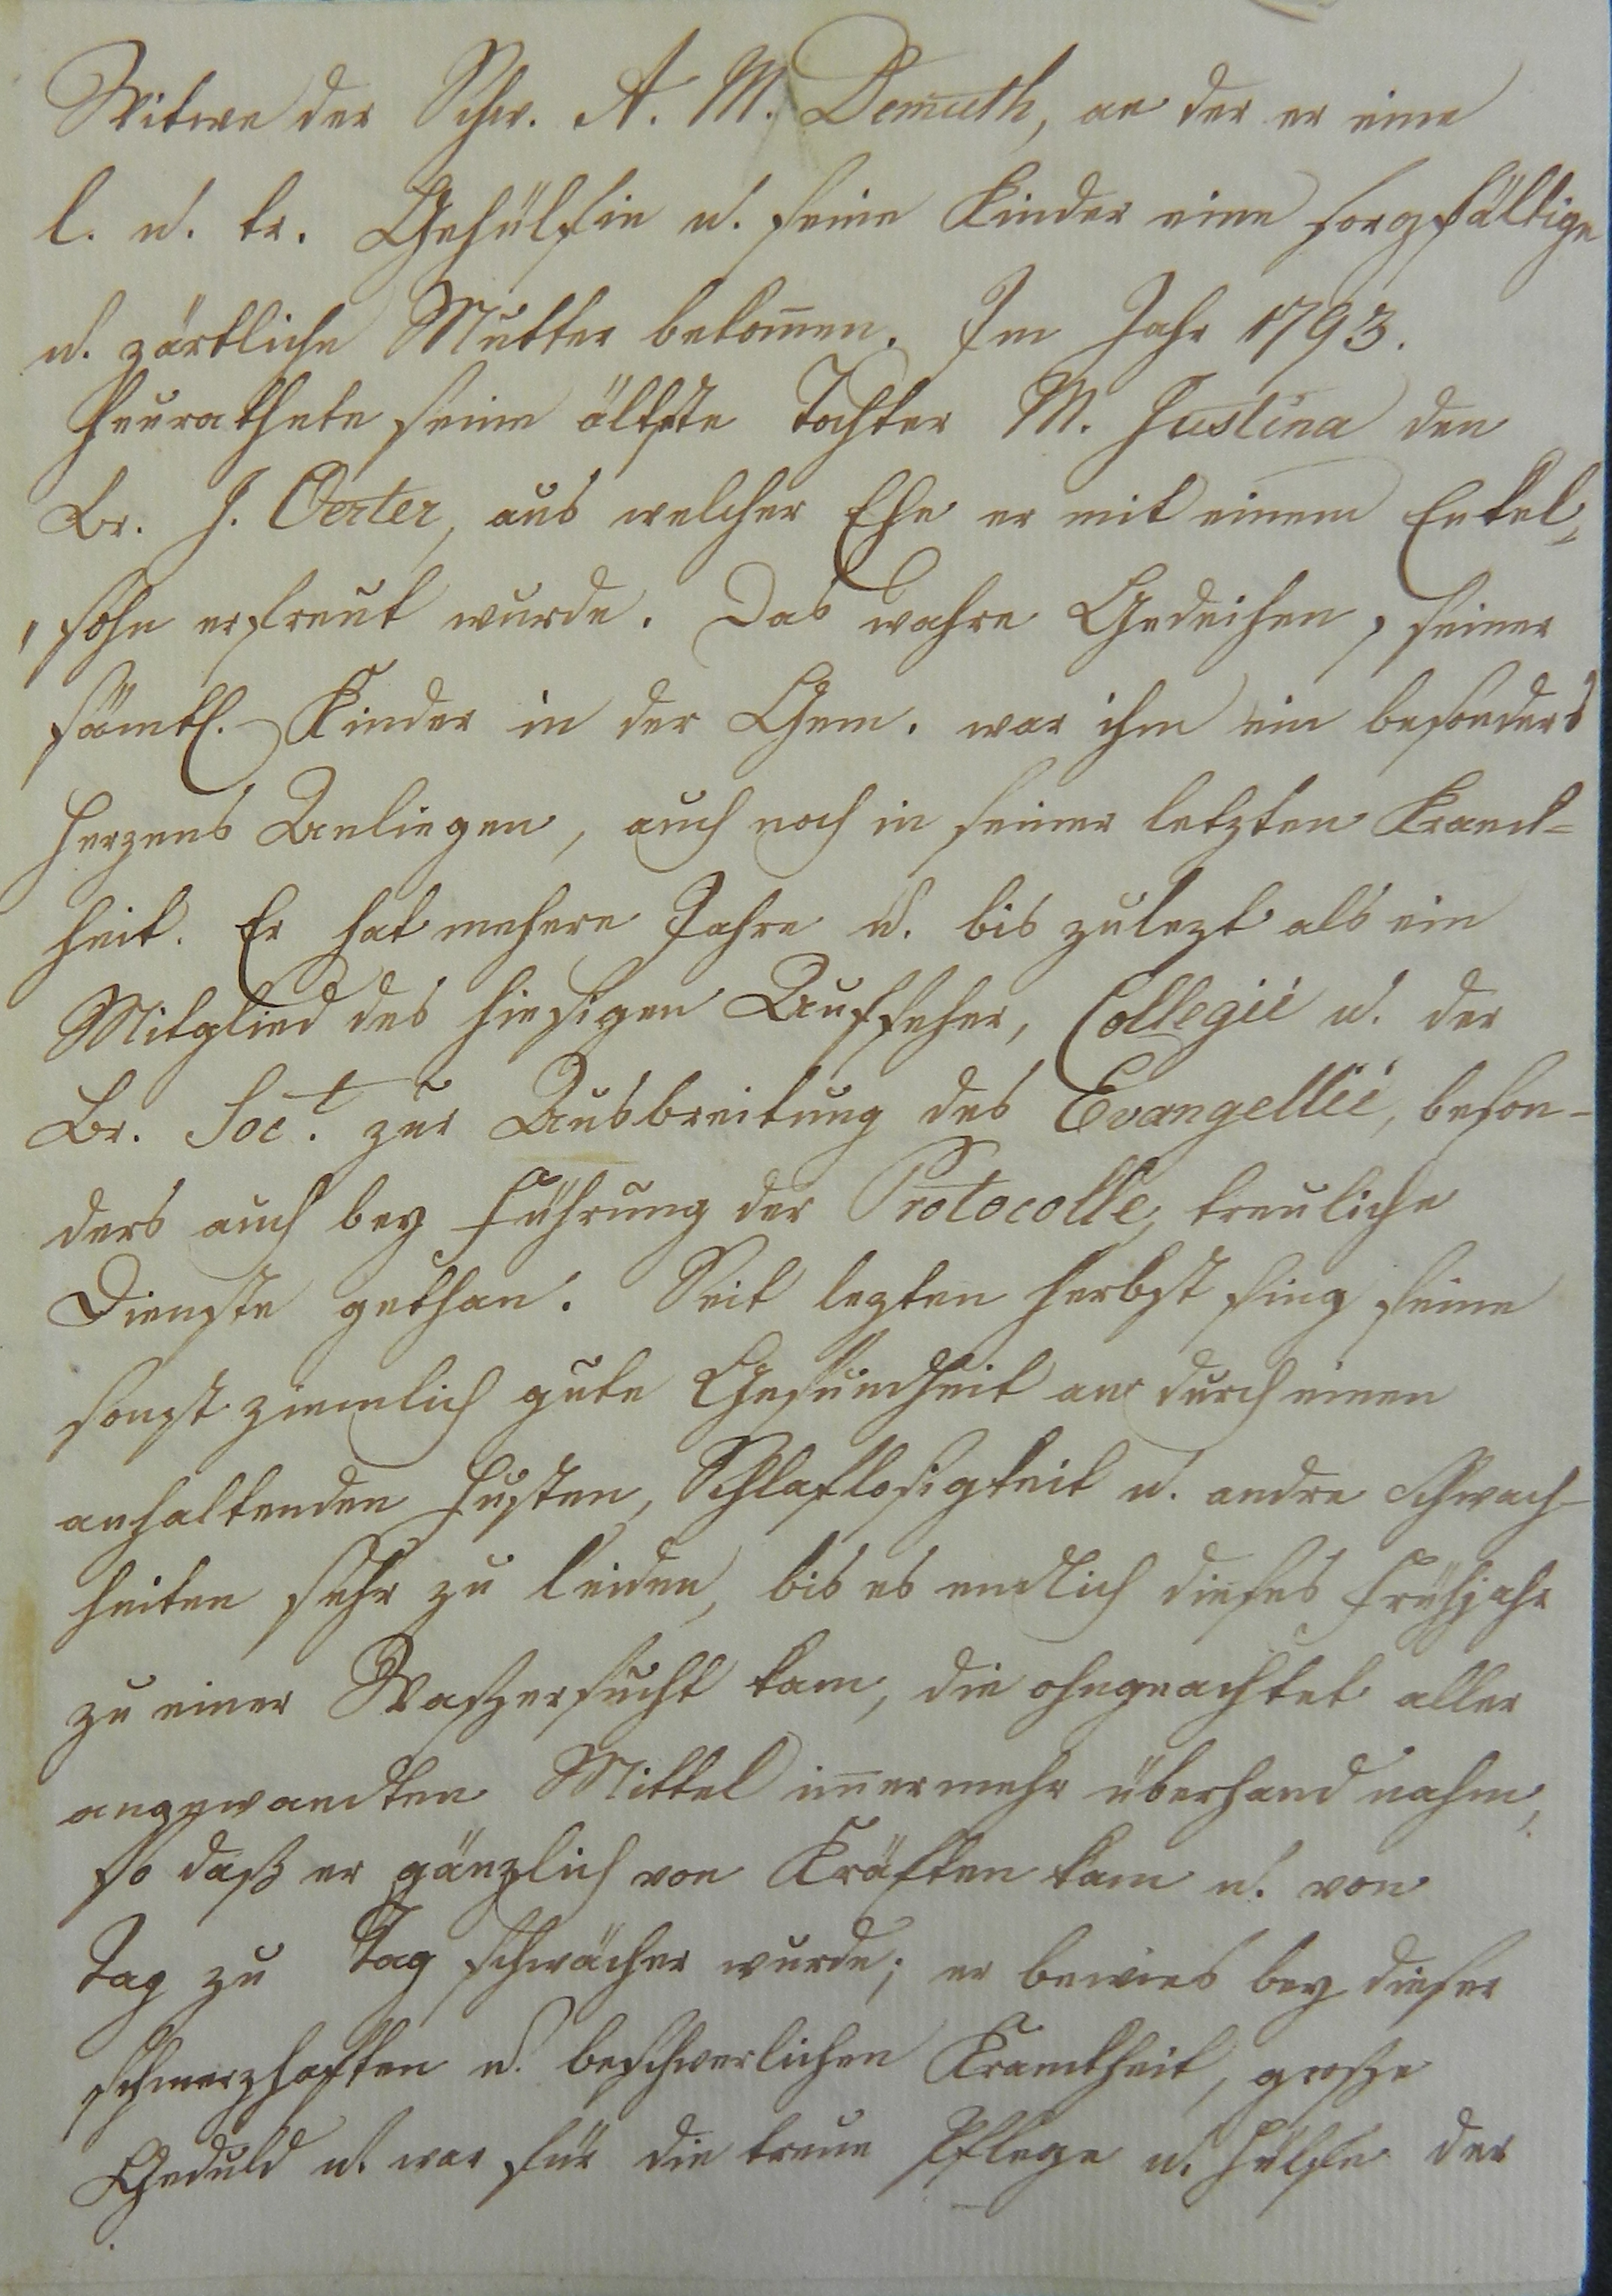 Witwe der Schw. A. M. Demuth, an der er eine
l. u. tr. Gehülfin u. seine Kinder eine sorgfältige
u. zärtliche Mutter bekom̄en. Im Jahr 1793.
heurathete seine ältste Tochter M. Justina den
Br. J. Oerter, aus welcher Ehe er mit einem Enkel„
„sohn erfreut wurde. Das wahre Gedeihen, seiner
sämtl. Kinder in der Gem. war ihm ein besonders
Herzens Anliegen, auch noch in seiner letzten Kranck=
heit. Er hat mehere Jahre u. bis zulezt als ein
Mitglied des hiesigen Aufseher, Collegii u. der
Br. Soct. zur Ausbreitung des Evangellii, beson-
ders auch bey Führung der Protocolle, treuliche
Dienste gethan. Seit lezten Herbst fing seine
sonst ziemlich gute Gesundheit an durch einen
anhaltenden Husten, Schlaflosigkeit u. andre Schwach-
heiten sehr zu leiden, bis es endlich dieses Frühjahr
zu einer Waszersucht kam, die ohngeachtet aller
angewandten Mittel im̄ermehr überhand nahm,
so daß er gänzlich von Kräften kam u. von
Tag zu Tag schwächer wurde; er bewies bey dieser
schmerzhaften u. beschwerlichen Kranckheit, grosze
Geduld u. war für die treue Pflege u. Hülfe der